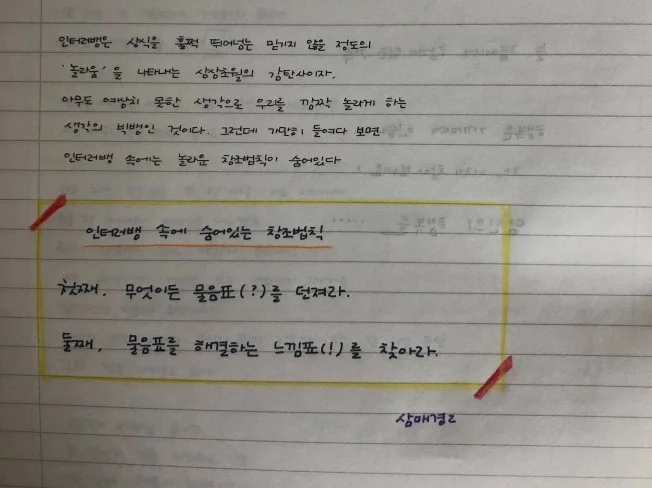 인터러뱅은 상식을 훌쩍 뛰어넘는 믿기지 않을 정도의
'놀라움'을 나타내는 상상초월의 감탄사이자.
아무도 예상치 못한 생각으로 우리를 깜짝 놀라게 하는
생각의 빅뱅인 것이다. 그런데 가만히 들여다 보면
인터러뱅 속에는 놀라운 창조법칙이 숨어있다
인터러뱅 속에 숨어있는 창조법칙
첫째. 무엇이든 물음표(?)를 던져라.
둘째, 물음표를 해결하는 느낌표(!)를 찾아라.
삼매경2